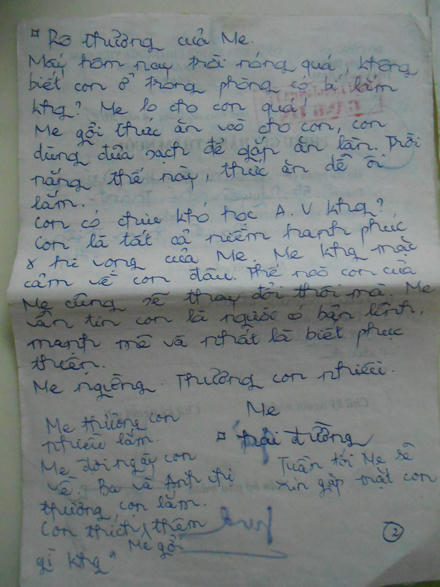 ¤ Rô thương của Mẹ.
Mấy hôm nay trời nóng quá, không
biết con ở trong phòng có bị lắm
khg? Mẹ lo cho con quá!
Mẹ gởi thức ăn vào cho con, con
dùng đũa sạch để gắp ăn lần. Trời
nắng thế này, thức ăn dễ ôi
lắm.
Con có chịu khó học A.V khg?
Con là tất cả niềm hạnh phúc
& hi vọng của Mẹ. Mẹ khg mặc
cảm về con đâu. Thế nào con của
Mẹ cũng sẽ thay đổi thôi mà. Mẹ
vẫn tin con là người có bản lĩnh,
mạnh mẽ và nhất là biết phục
thiện.
Mẹ ngưng. Thương con nhiều.
Mẹ
Mẹ thương con
nhiều lắm.
Mẹ đợi ngày con
về. Ba và Anh chị
thương con lắm.
Con thích thêm
gì khg "Mẹ gởi
¤ đường
Tuần tới Mẹ sẽ
xin gặp mặt con
2